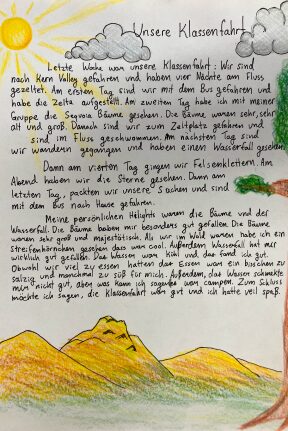 Unsere Klassenfahrt
Letzte Woche war unsere Klassenfahrt: Wir sind
nach Kern Valley gefahren und haben vier Nächte am Fluss
gezeltet. Am ersten Tag sind wir mit dem Bus gefahren und
habe die Zelta aufgestellt. Am zweiten Tag habe ich mit meiner
Gruppe die Sequoia Bäume gesehen. Die Bäume waren sehr, sehr
alt und groß. Danach sind wir zum Zeltplatz gefahren und
sind im Fluss geschwommen. Am nächsten Tag sind
wir wandern gegangen und haben einen Wasserfall gesehen.
Dann am vierten Tag gingen wir Felsenklettern. Am
Abend haben wir die Sterne gesehen. Dann am
letzten Tag, packten wir unsere Sachen und sind
mit dem Bus nach Hause gefahren.
Meine persönlichen Hilights waren die Bäume und der
Wasserfall. Die Bäume haben mir besonders gut gefallen. Die Bäume
waren sehr groß und majestätisch. Als wir im Wald waren habe ich ein
Streifenhörnchen gesehen das war cool. Außerdem Wasserfall hat mir
wirklich gut gefallen. Das Wasser war kühl und das fand ich gut.
Obwohl wir viel zu essen hatten das Essen war ein bisschen zu
salzig und manchmal zu süß für mich. Außerdem, das Wasser schmeckte
mir nicht gut, aber was kann ich sagen wir waren campen. Zum Schluss
möchte ich sagen, die Klassenfahrt war gut und ich hatte viel spaß.